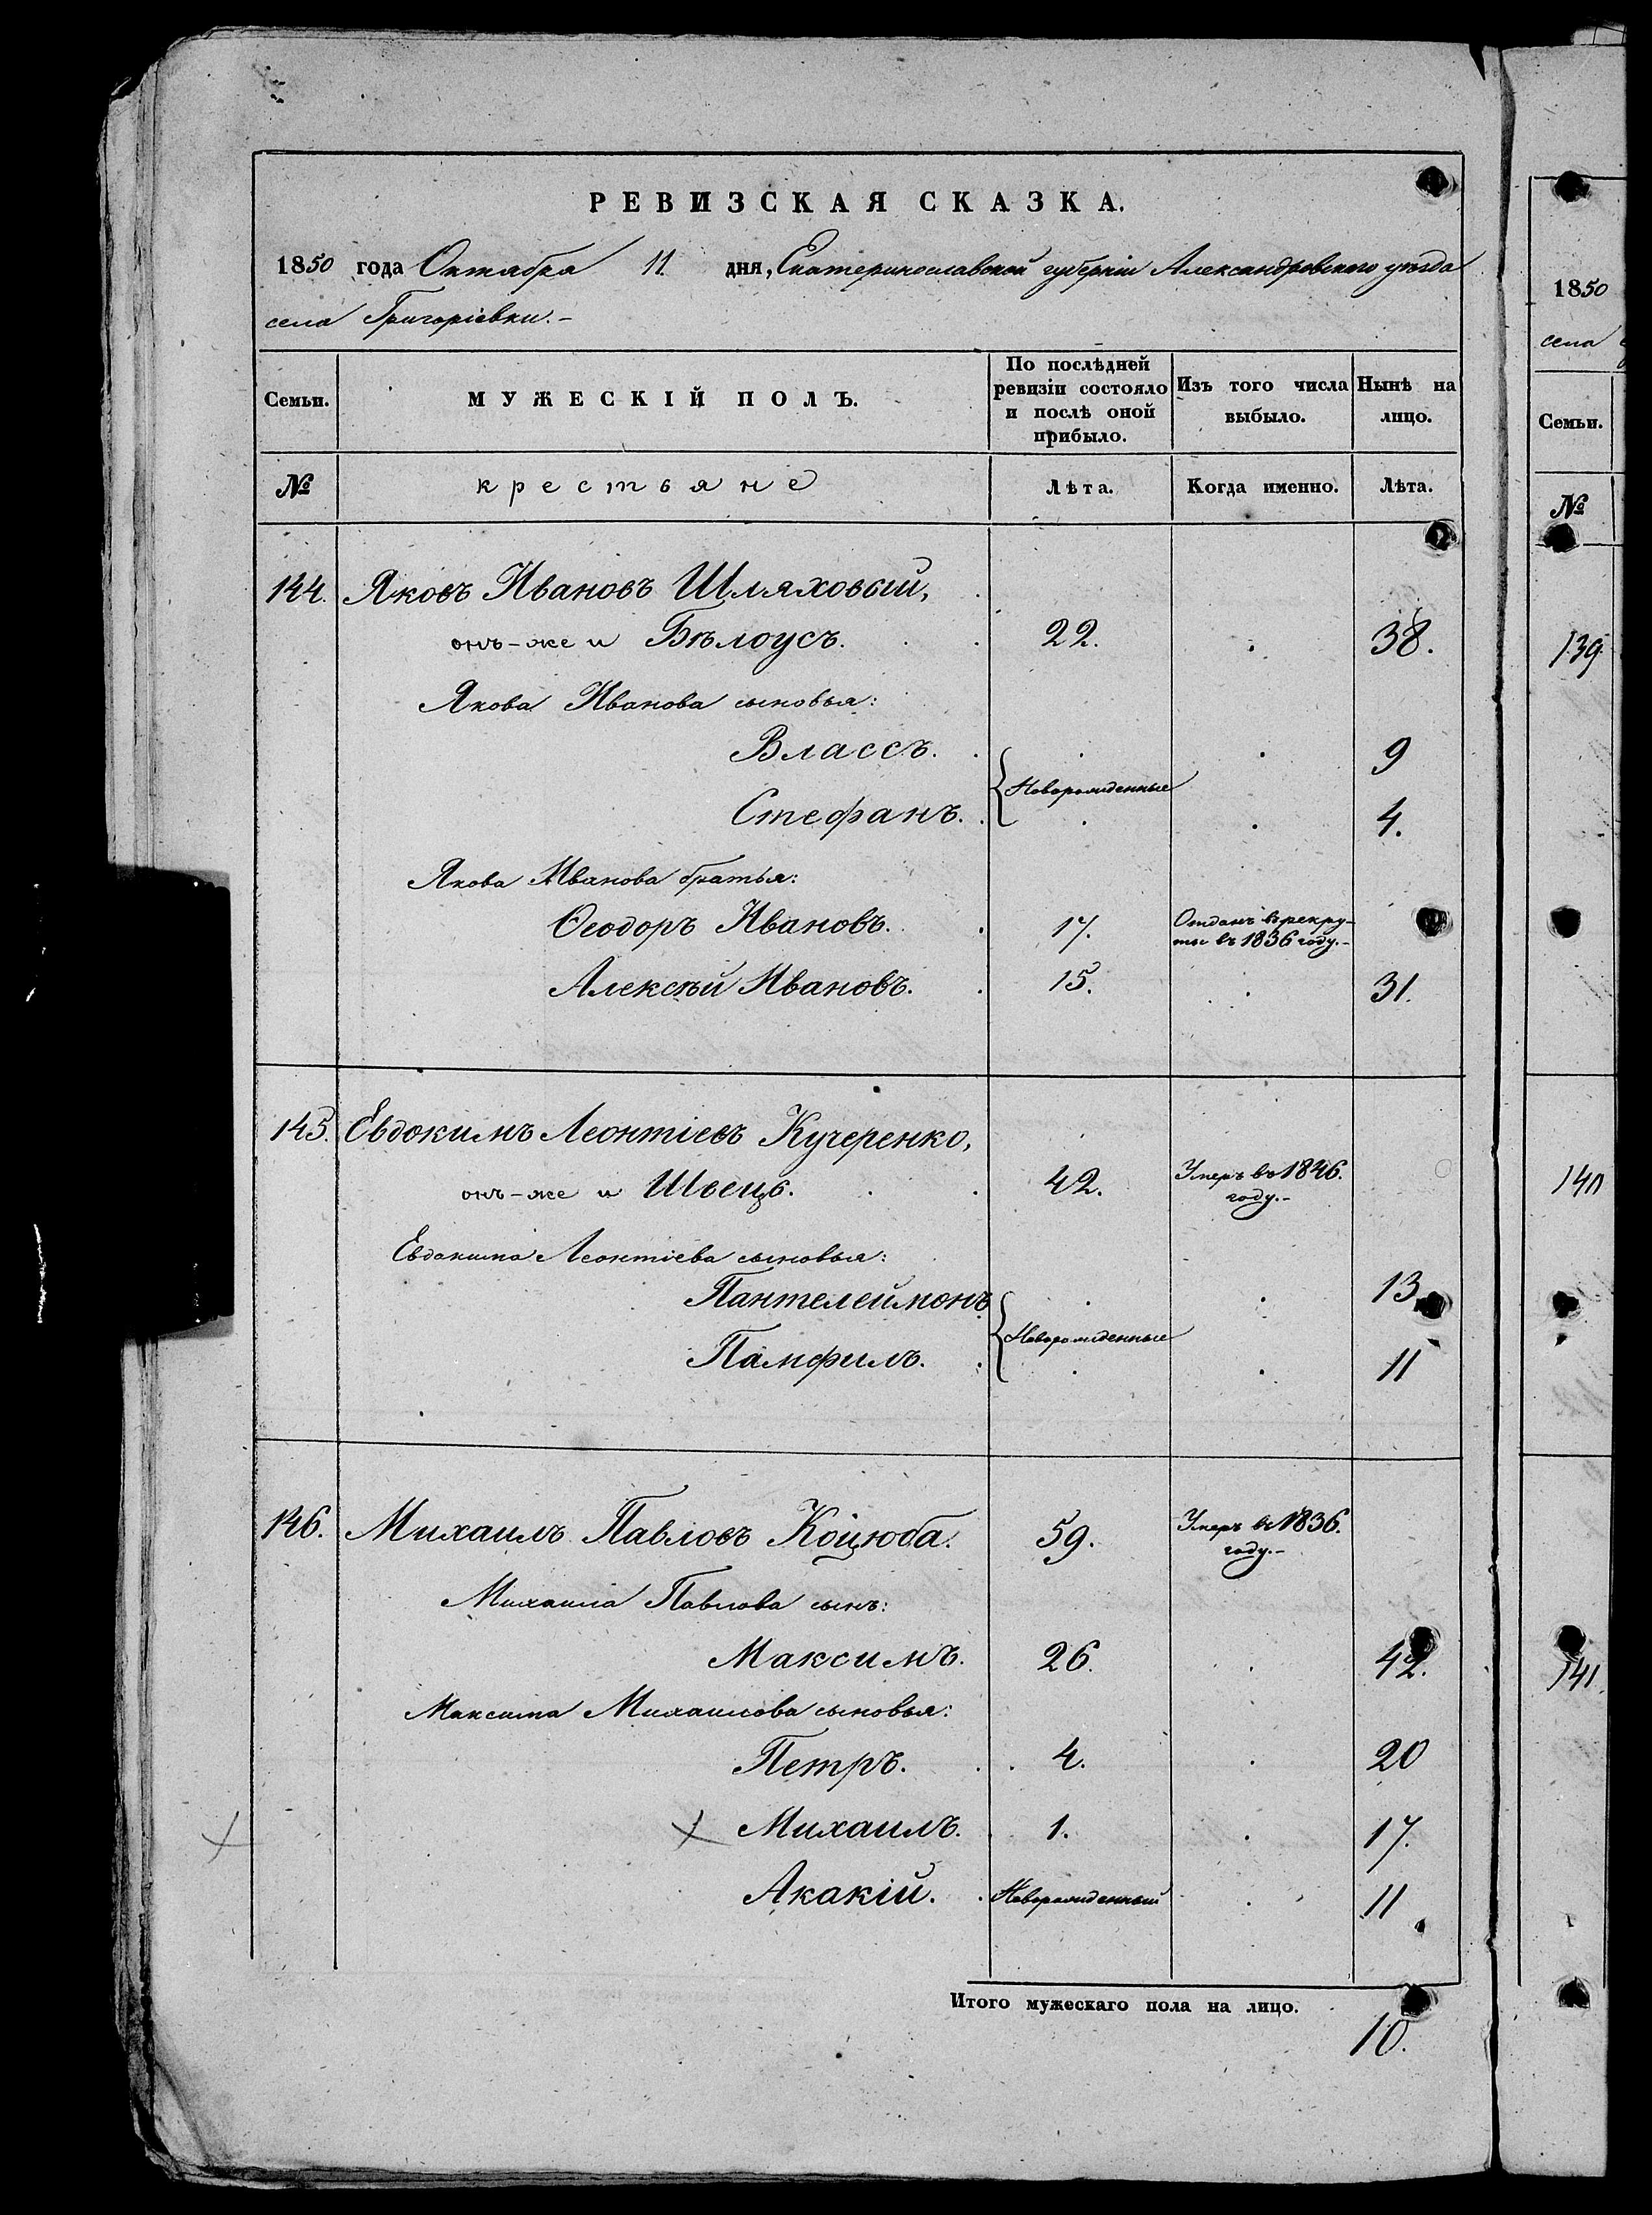 РЕВИЗСКАЯ СКАЗКА.
1850 года Октября 11. дня, Екатеринославской губерніи Александровскаго уѣзда
села Григоріевки.-
Семьи. МУЖЕСКІЙ ПОЛЪ. По послѣдней ревизіи состояло и послѣ оной прибыло. Изъ того числа выбыло. Нынѣ на лицо.
№ крестьяне Лѣта. Когда именно. Лѣта.
144. Яковъ Ивановъ Шляховый,
онъ-же и Бѣлоусъ. 22. 38.
Якова Иванова сыновья:
Влассъ. 9
Новорожденные
Стефанъ. 4.
Якова Иванова братья:
Ѳеодоръ Ивановъ. 17. Отданъ въ рекру-
ты въ 1836 году.-
Алексѣй Ивановъ. 15. 31.
145. Евдокимъ Леонтіевъ Кучеренко,
онъ-же и Швецъ. 42. Умеръ въ 1846.
году.-
Евдокима Леонтіева сыновья:
Пантелеймонъ 13.
Новорожденные
Памфилъ. 11
146. Михаилъ Павловъ Коцюба. 59. Умеръ въ 1836.
году.-
Михаила Павлова сынъ:
Максимъ. 26. 42.
Максима Михаилова сыновья:
Петръ. 4. 20
Михаилъ. 1. 17.
Акакій. Новорожденный 11
Итого мужескаго пола на лицо.
10.
1850
села
Семьи.
№
139.
140
141